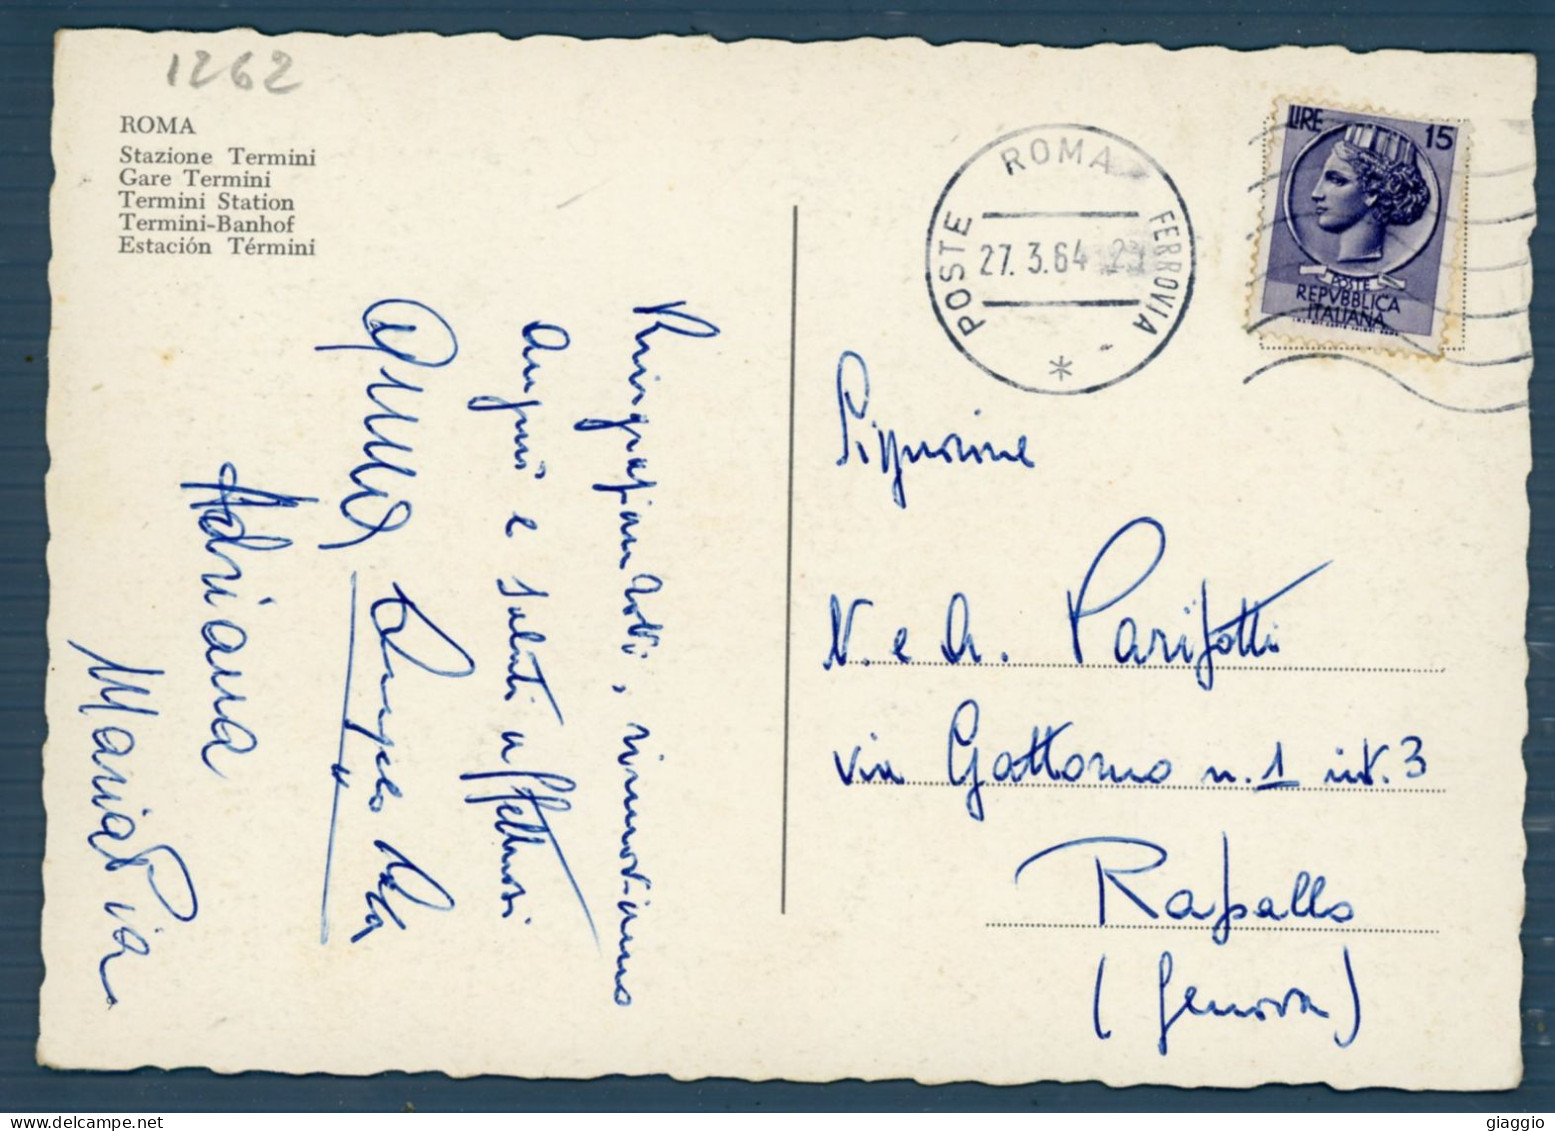 1262
ROMA
Stazione Termini
Gare Termini
Termini Station
Termini-Banhof
Estación Términi
POSTE ROMA FERROVIA
27.3.64
LIRE 15
POSTE
REPVBBLICA
ITALIANA
Ringraziandovi, ricambiamo
auguri e saluti affettuosi
Adriana
Maria Pia
Signorine
N. e A. Parisotti
via Gattorno n. 1 int. 3
Rapallo
(Genova)
giaggio